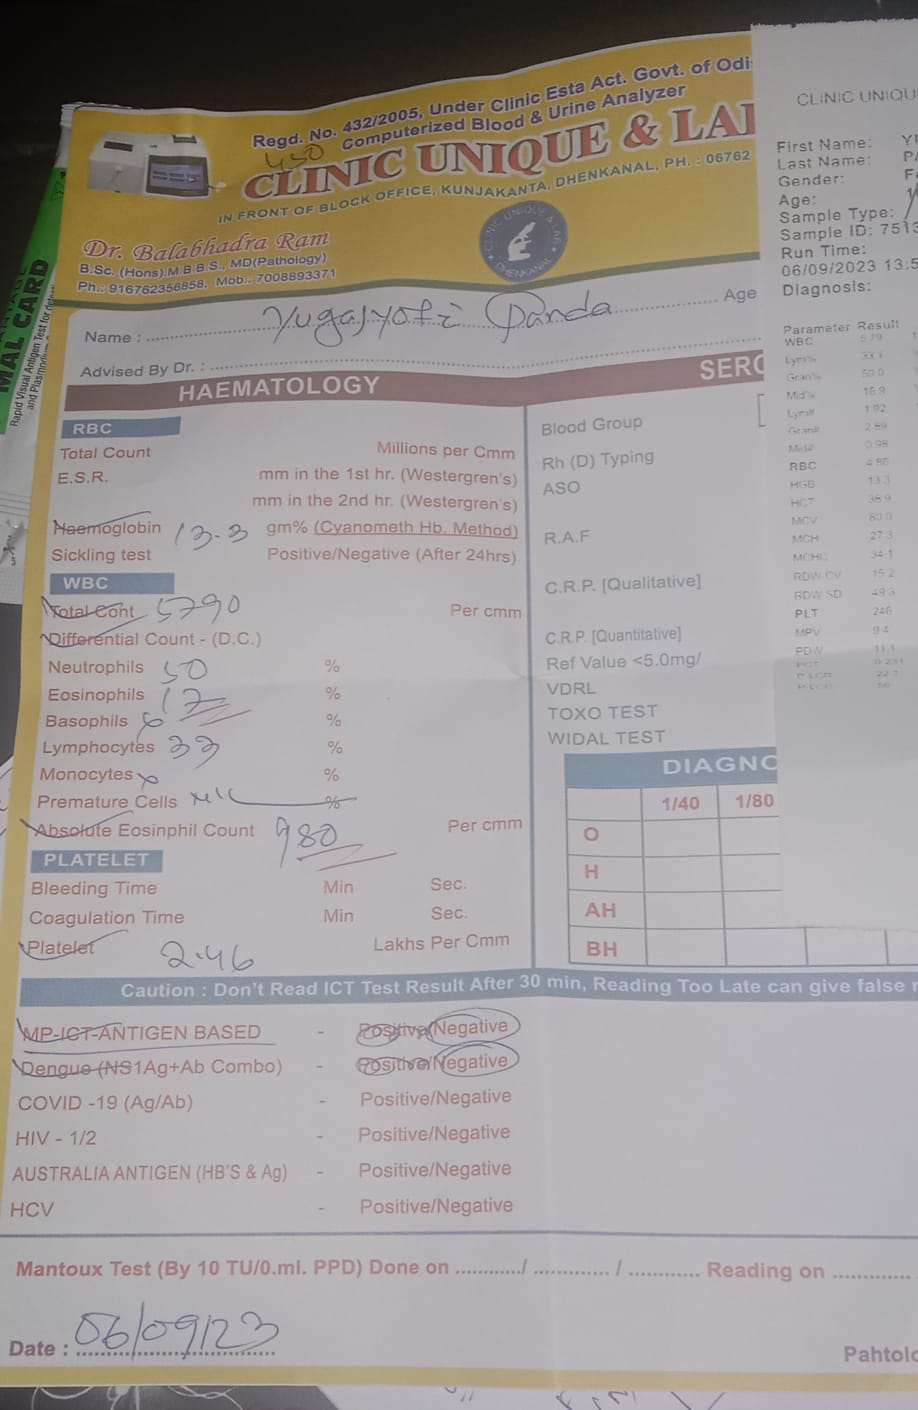 Regd. No. 432/2005, Under Clinic Esta Act. Govt. of Odi
Computerized Blood & Urine Analyzer
450
CLINIC UNIQUE & LA
IN FRONT OF BLOCK OFFICE, KUNJAKANTA, DHENKANAL, PH. : 06762
Dr. Balabhadra Ram
B.Sc. (Hons) M.B.B.S., MD(Pathology)
Ph.: 916762356858, Mob.. 7008893371
CLINIC UNIQUE & LAB
DHENKANAL
MAL CARD
Rapid Visual Antigen Test for
and Plasmodium
Name : Yugajyoti Panda Age
Advised By Dr. :
HAEMATOLOGY
RBC
Total Count Millions per Cmm
E.S.R. mm in the 1st hr. (Westergren's)
mm in the 2nd hr. (Westergren's)
Haemoglobin 13.3 gm% (Cyanometh Hb. Method)
Sickling test Positive/Negative (After 24hrs)
WBC
Total Cont 5790 Per cmm
Differential Count - (D.C.)
Neutrophils 50 %
Eosinophils 17 %
Basophils %
Lymphocytes 33 %
Monocytes %
Premature Cells %
Absolute Eosinphil Count 980 Per cmm
PLATELET
Bleeding Time Min Sec.
Coagulation Time Min Sec.
Platelet 2.46 Lakhs Per Cmm
SERO
Blood Group
Rh (D) Typing
ASO
R.A.F
C.R.P. [Qualitative]
C.R.P. [Quantitative]
Ref Value <5.0mg/
VDRL
TOXO TEST
WIDAL TEST
DIAGNO
1/40 1/80
O
H
AH
BH
Caution : Don't Read ICT Test Result After 30 min, Reading Too Late can give false r
MP-ICT-ANTIGEN BASED - Positive/Negative
Dengue (NS1Ag+Ab Combo) - Positive/Negative
COVID -19 (Ag/Ab) - Positive/Negative
HIV - 1/2 - Positive/Negative
AUSTRALIA ANTIGEN (HB'S & Ag) - Positive/Negative
HCV - Positive/Negative
Mantoux Test (By 10 TU/0.ml. PPD) Done on ............/ ............. / ............ Reading on .............
Date : 06/09/23
Pahtolo
CLINIC UNIQU
First Name: YU
Last Name: PA
Gender: F
Age: 1
Sample Type:
Sample ID: 7513
Run Time:
06/09/2023 13:5
Diagnosis:
Parameter Result
WBC 5.79
Lym% 33.1
Gran% 50.0
Mid% 16.9
Lym# 1.92
Gran# 2.89
Mid# 0.98
RBC 4.86
HGB 13.3
HCT 38.9
MCV 80.0
MCH 27.3
MCHC 34.1
RDW-CV 15.2
RDW-SD 49.3
PLT 246
MPV 9.4
PDW 11.1
PCT 0.231
P-LCR 22.7
P-LCC 56